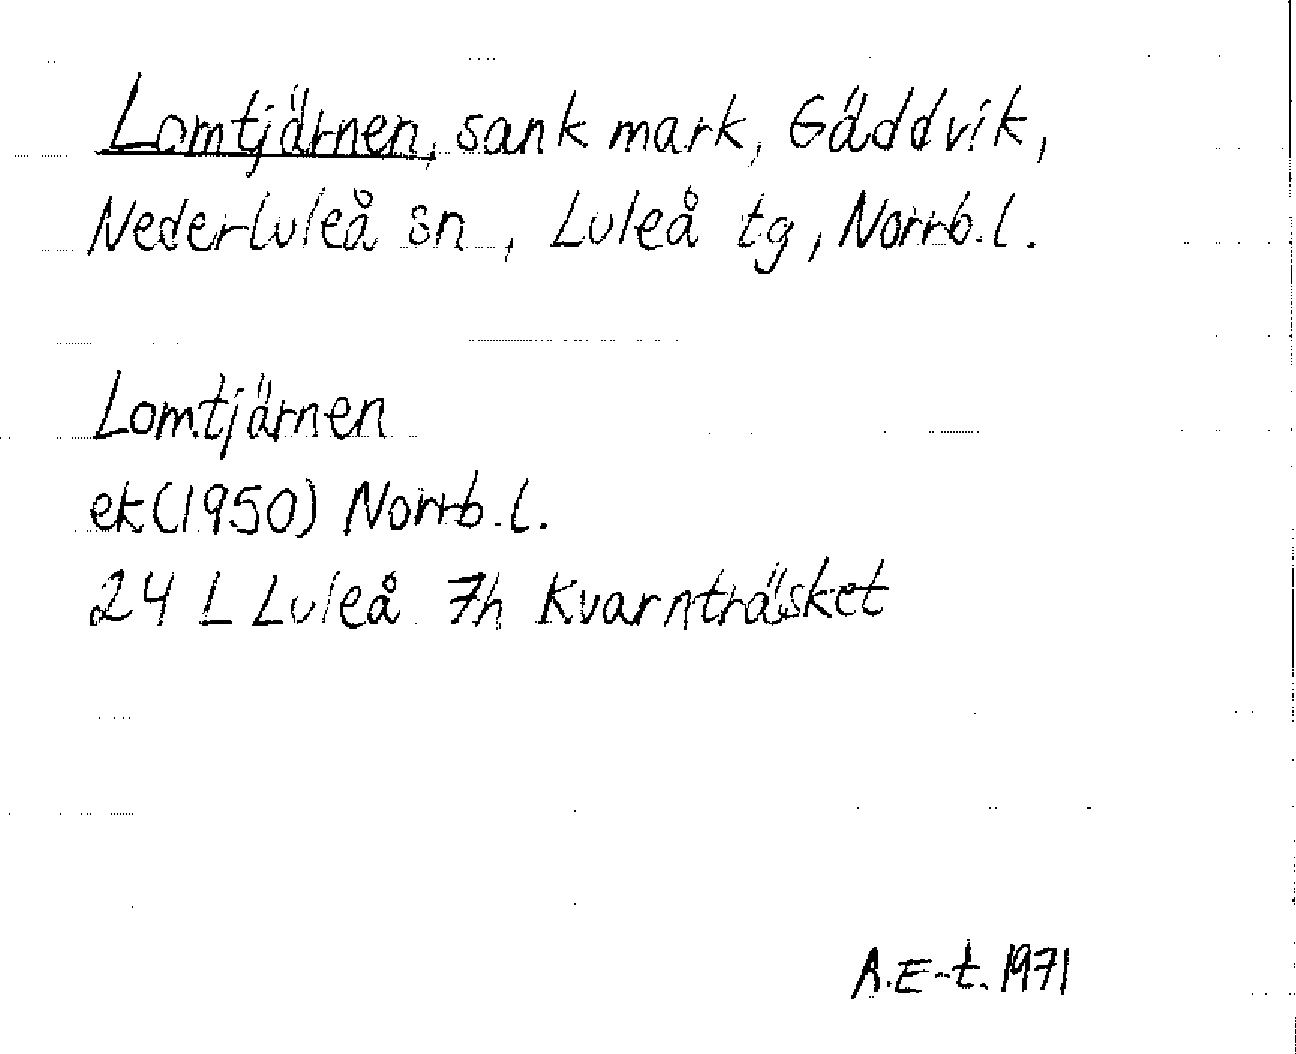 Lomtjärnen, sank mark, Gäddvik,
Nederluleå sn, Luleå tg, Norrb.l.
Lomtjärnen
ek(1950) Norrb.l.
24 L Luleå 7h Kvarnträsket
A.E-t. 1971